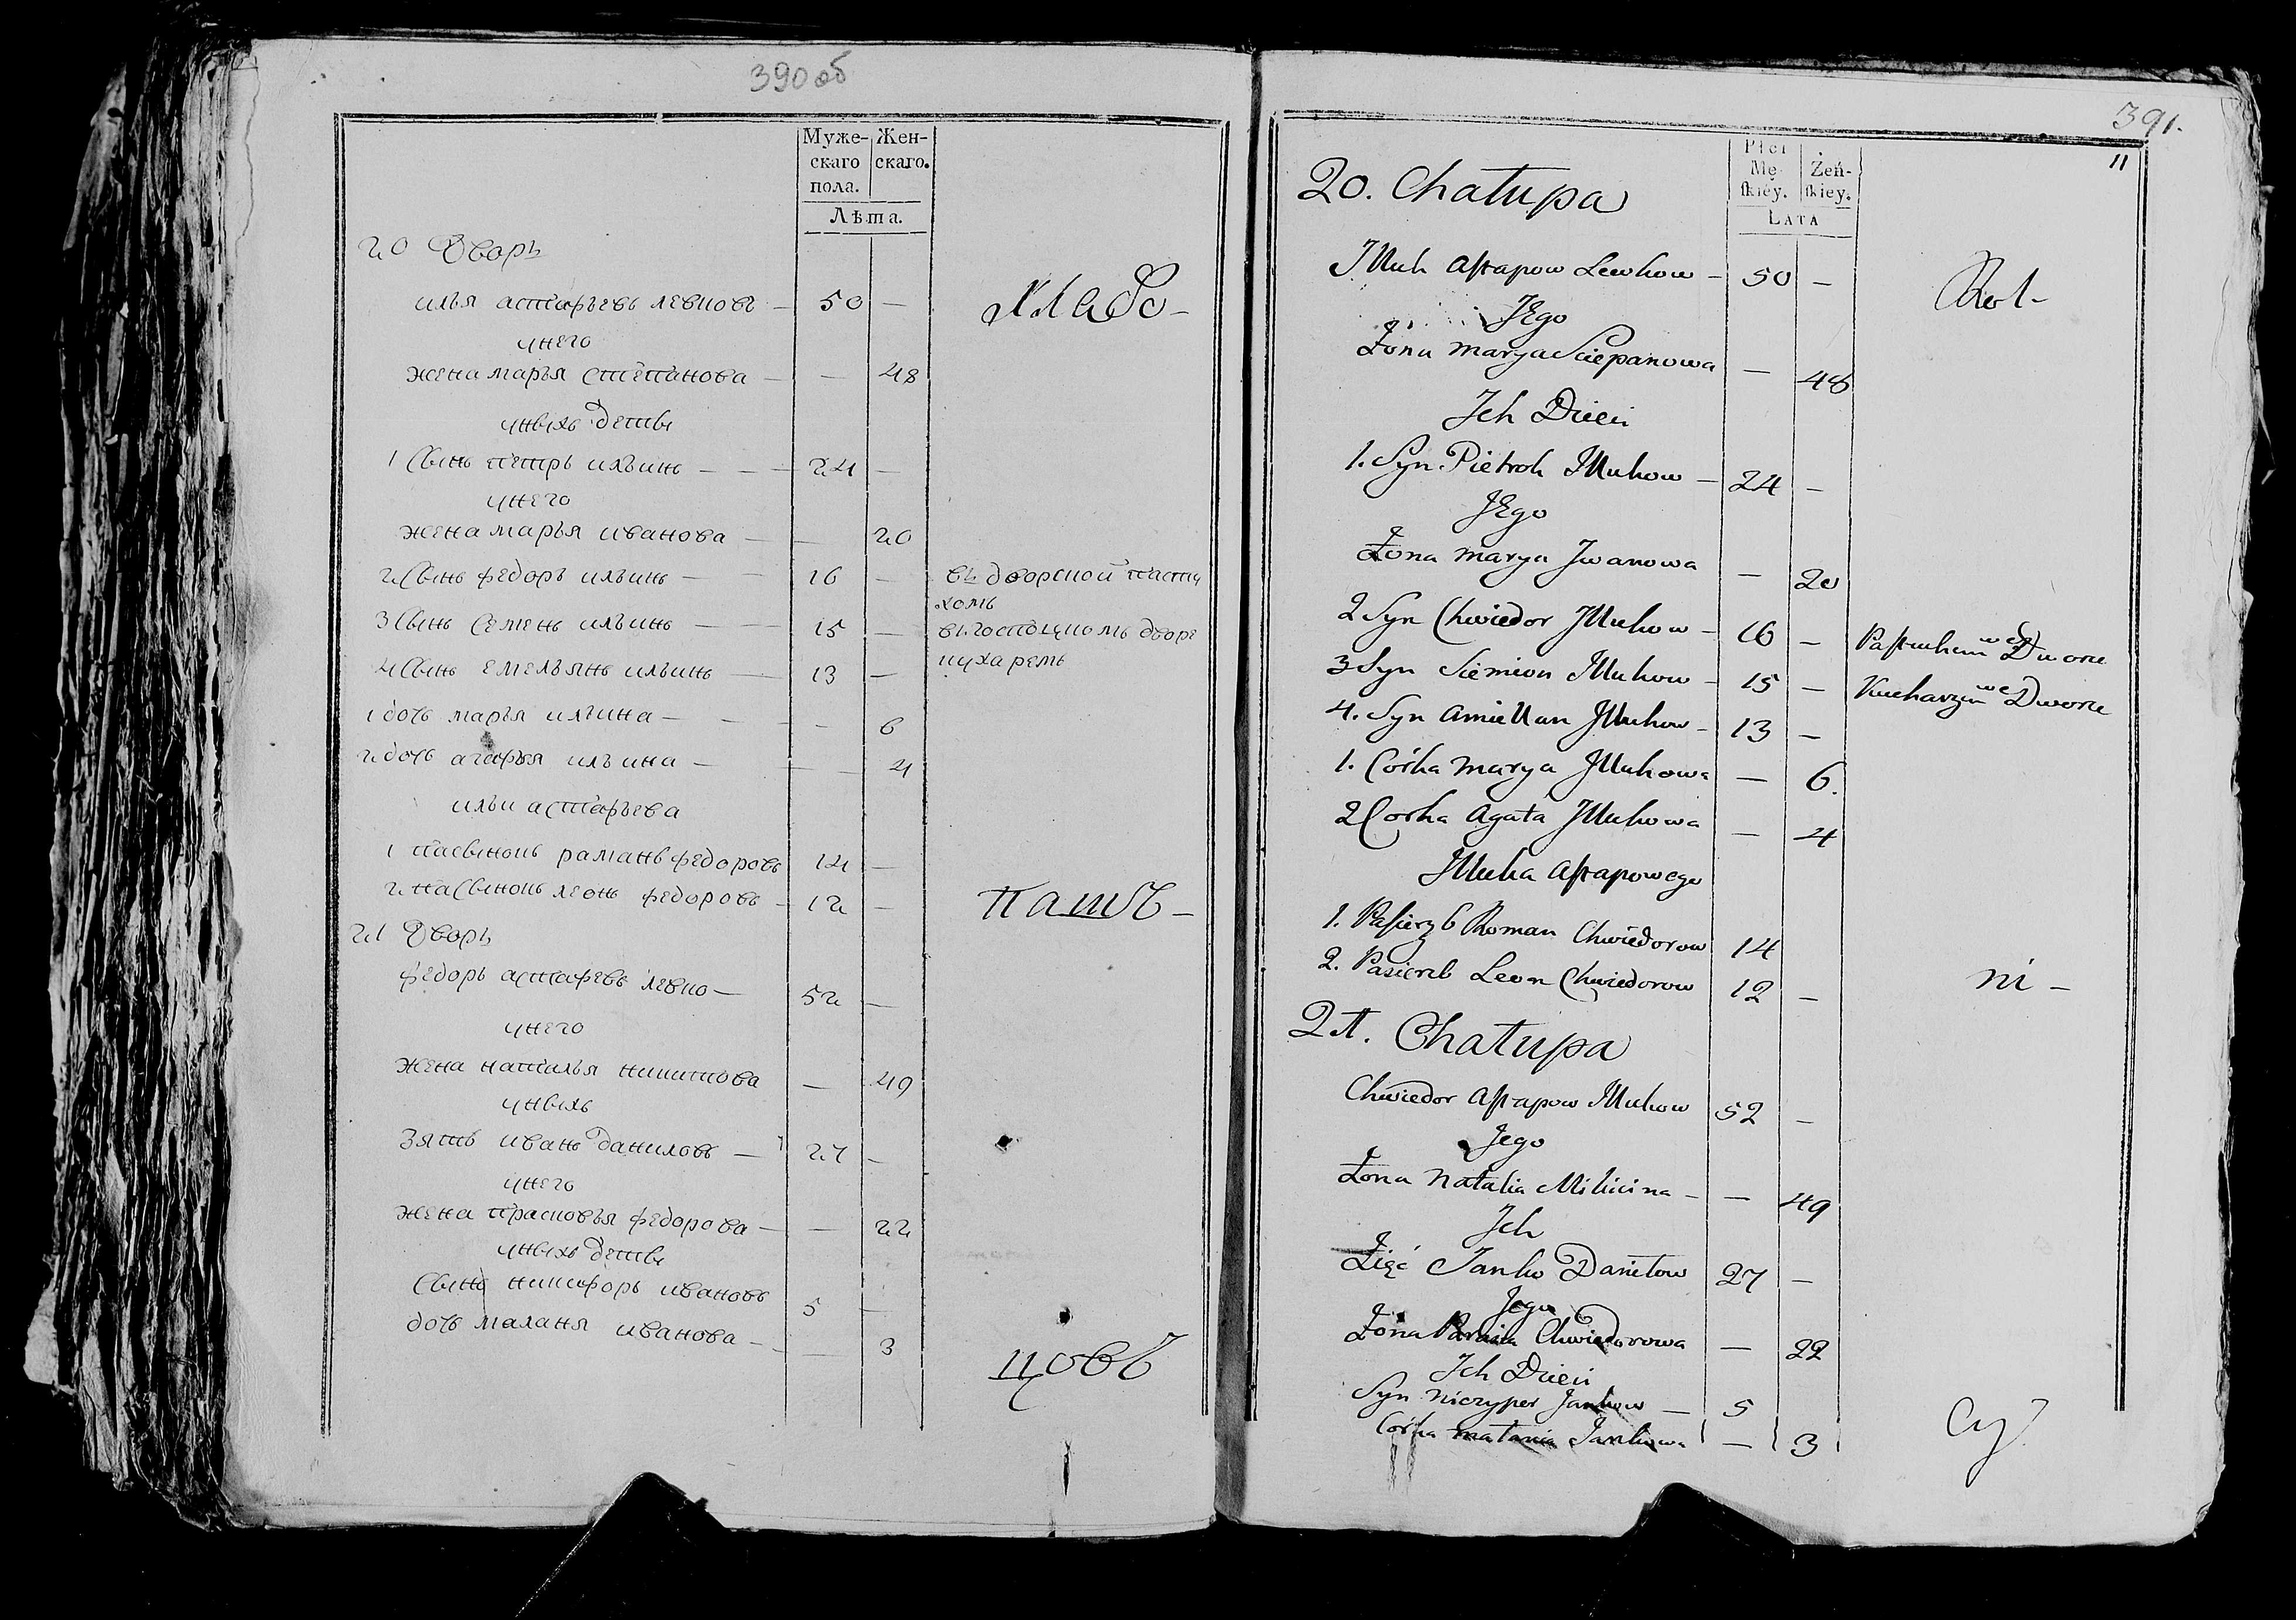 390 об
Муже-
скаго
пола.
Жен-
скаго.
Лѣта.
20 Дворъ
илья астафьевъ левковъ — 50 —
унего
жена марья степанова — — 48
унихъ дети
1 Сынъ петръ ильинъ — — 24 —
унего
жена марья иванова — — 20
2 Сынъ федоръ ильинъ — — 16 —
въ дворской пасту
хомъ
3 Сынъ Семенъ ильинъ — — 15 —
въ господскомъ дворе
кухаремъ
4 Сынъ емельянъ ильинъ — 13 —
1 дочь марья ильина — — — 6
2 дочь агафья ильина — — — 4
ильи астафьева
1 пасынокъ раманъ федоровъ 14 —
2 пасынокъ леонъ федоровъ — 12 —
хлебо-
пашъ-
цовъ
21 Дворъ
федоръ астафевъ левко — 52 —
унего
жена наталья никитова — 49
унихъ
Зять иванъ даниловъ — 27 —
унего
жена прасковья федорова — — 22
унихъ дети
Сынъ никифоръ ивановъ 5 —
дочь маланья иванова — — 3
391.
11
Płci
Mę-
ſkiéy.
Żeń-
ſkiey.
LATA
20. Chałupa
Jlluk Aſtapow Lewkow — 50 —
JEgo
Żona Marya Sciepanowa — 48
Jch Dzieci
1. Syn Pietrok Jllukow — 24 —
JEgo
Żona Marya Jwanowa — 20
2 Syn Chwiedor Jllukow — 16 —
Paſtuchem we Dworze
3 Syn Siemion Jllukow — 15 —
Kucharzem we Dworze
4. Syn Amiellan Jllukow — 13 —
1. Córka Marya Jllukowa — 6.
2 Corka Agata Jllukowa — 4
Jlluka Aſtapowego
1. Paſierzb Roman Chwiedorow 14
2. Pasierzb Leon Chwiedorow 12 —
Rol-
ni-
cy
21. Chałupa
Chwiedor Aſtapow Jllukow 52 —
Jego
Żona Natalia Mikicina — — 49
Jch
Zięć Janko Daniłow 27 —
Jego
Żona Parasia Chwiedorowa — 22
Jch Dzieci
Syn Niczyper Jankow — 5
Córka Małania Jankowa — 3